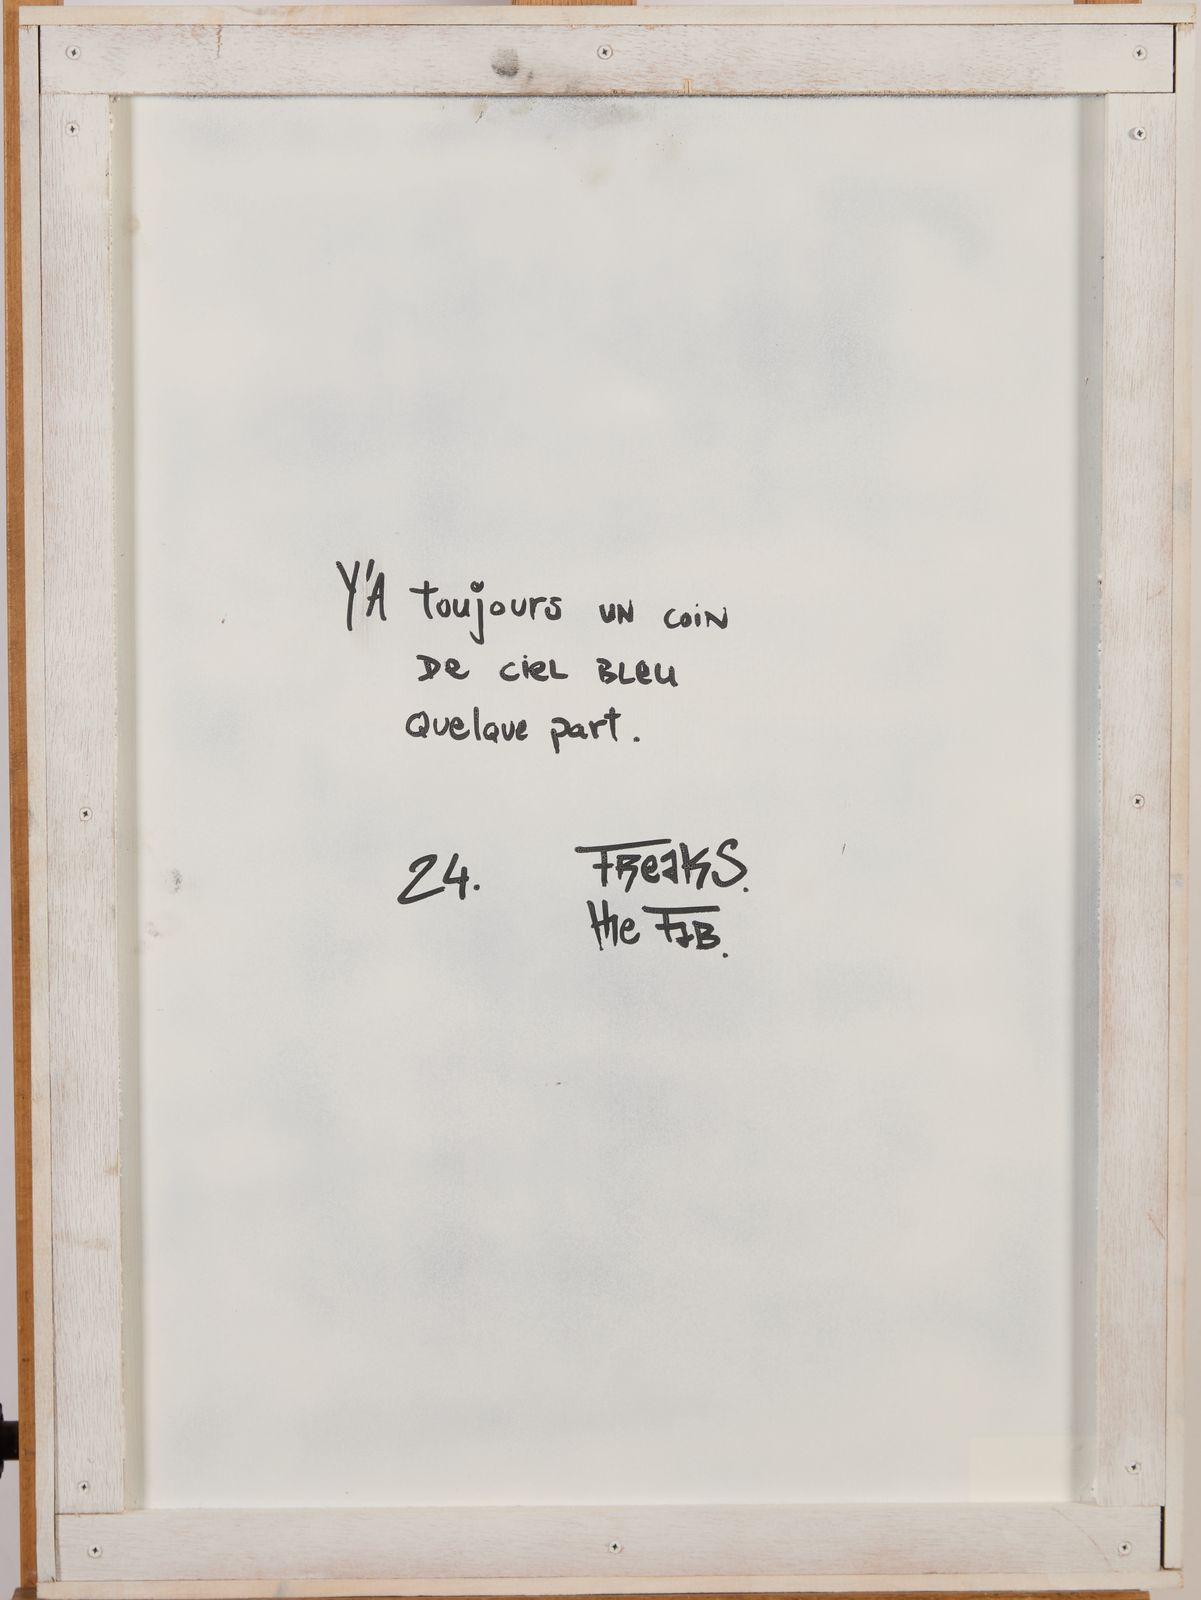 Y'A toujours UN COIN
De CieL BLeu
Quelque part.
24. FReaKS.
the FAB.